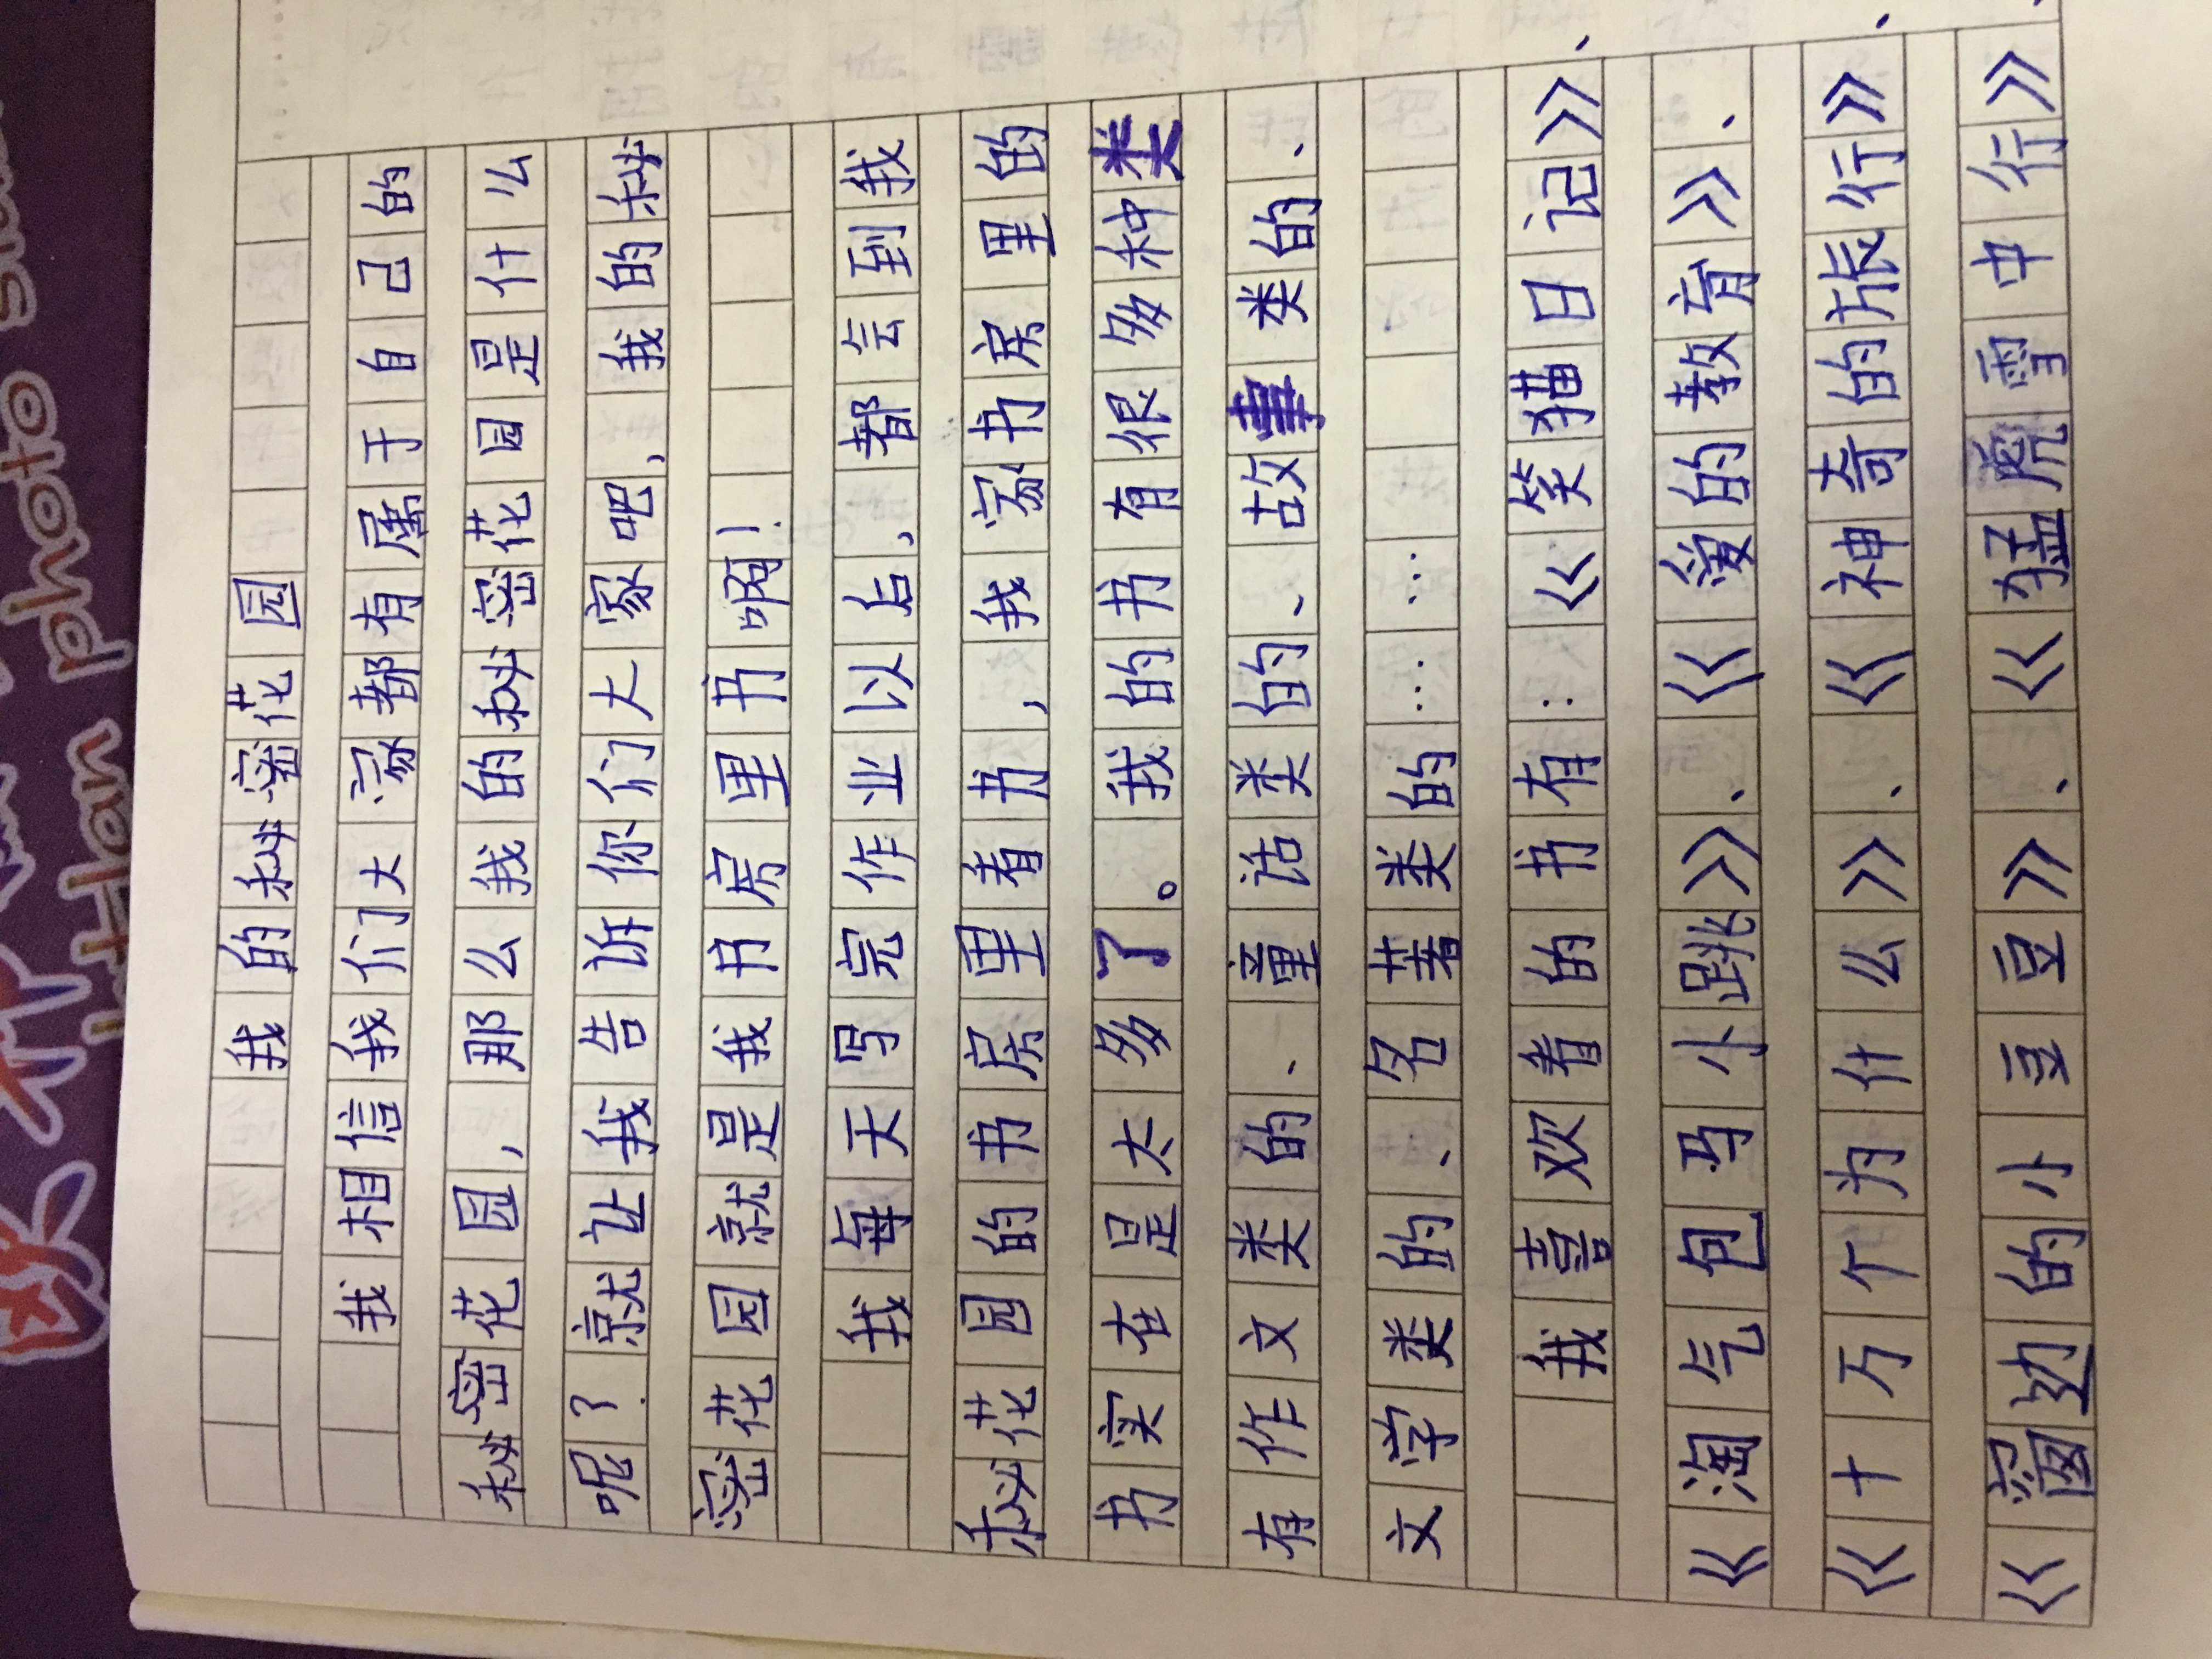 我的秘密花园
我相信我们大家都有属于自己的
秘密花园，那么我的秘密花园是什么
呢？就让我告诉你们大家吧，我的秘
密花园就是我书房里书啊！
我每天写完作业以后，都会到我
秘花园的书房里看书，我家书房里的
书实在是太多了。我的书有很多种类
有作文类的、童话类的、故事类的、
文学类的、名著类的……
我喜欢看的书有：《笑猫日记》、
《淘气包马小跳》、《爱的教育》、
《十万个为什么》、《神奇的旅行》、
《窗边的小豆豆》、《猛虎雪中行》、
photo